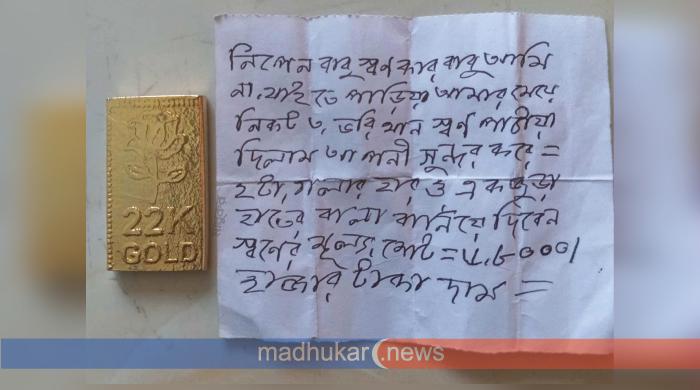 22K
GOLD
নিপেন বাবু স্বর্ণকার বাবু আমি
না, যাইতে পাড়িয়া আমার মেয়ে
নিকট ৩, ভরি খান স্বর্ণ পাঠীয়া
দিলাম আপনী সুন্দর করে =
২টা, গলার হার ও এক জুড়া
হাতের বালা বানিয়ে দিবেন
স্বর্ণের মূল্য, মোট =
হাজার টাকা দাম =
madhukar.news